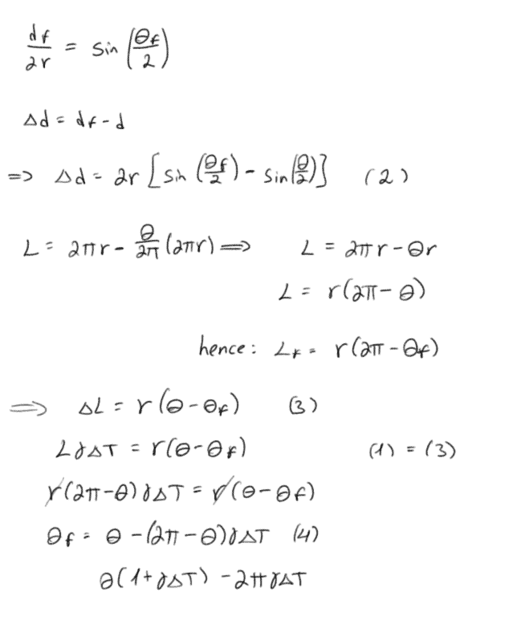 df/2r = sin(θf/2)
Δd = df - d
=> Δd = 2r [sin(θf/2) - sin(θ/2)] (2)
L = 2πr - θ/2π (2πr) => L = 2πr - θr
L = r(2π - θ)
hence: Lf = r(2π - θf)
=> ΔL = r(θ - θf) (3)
LγΔT = r(θ - θf) (1) = (3)
r(2π - θ)γΔT = r(θ - θf)
θf = θ - (2π - θ)γΔT (4)
θ(1 + γΔT) - 2πγΔT